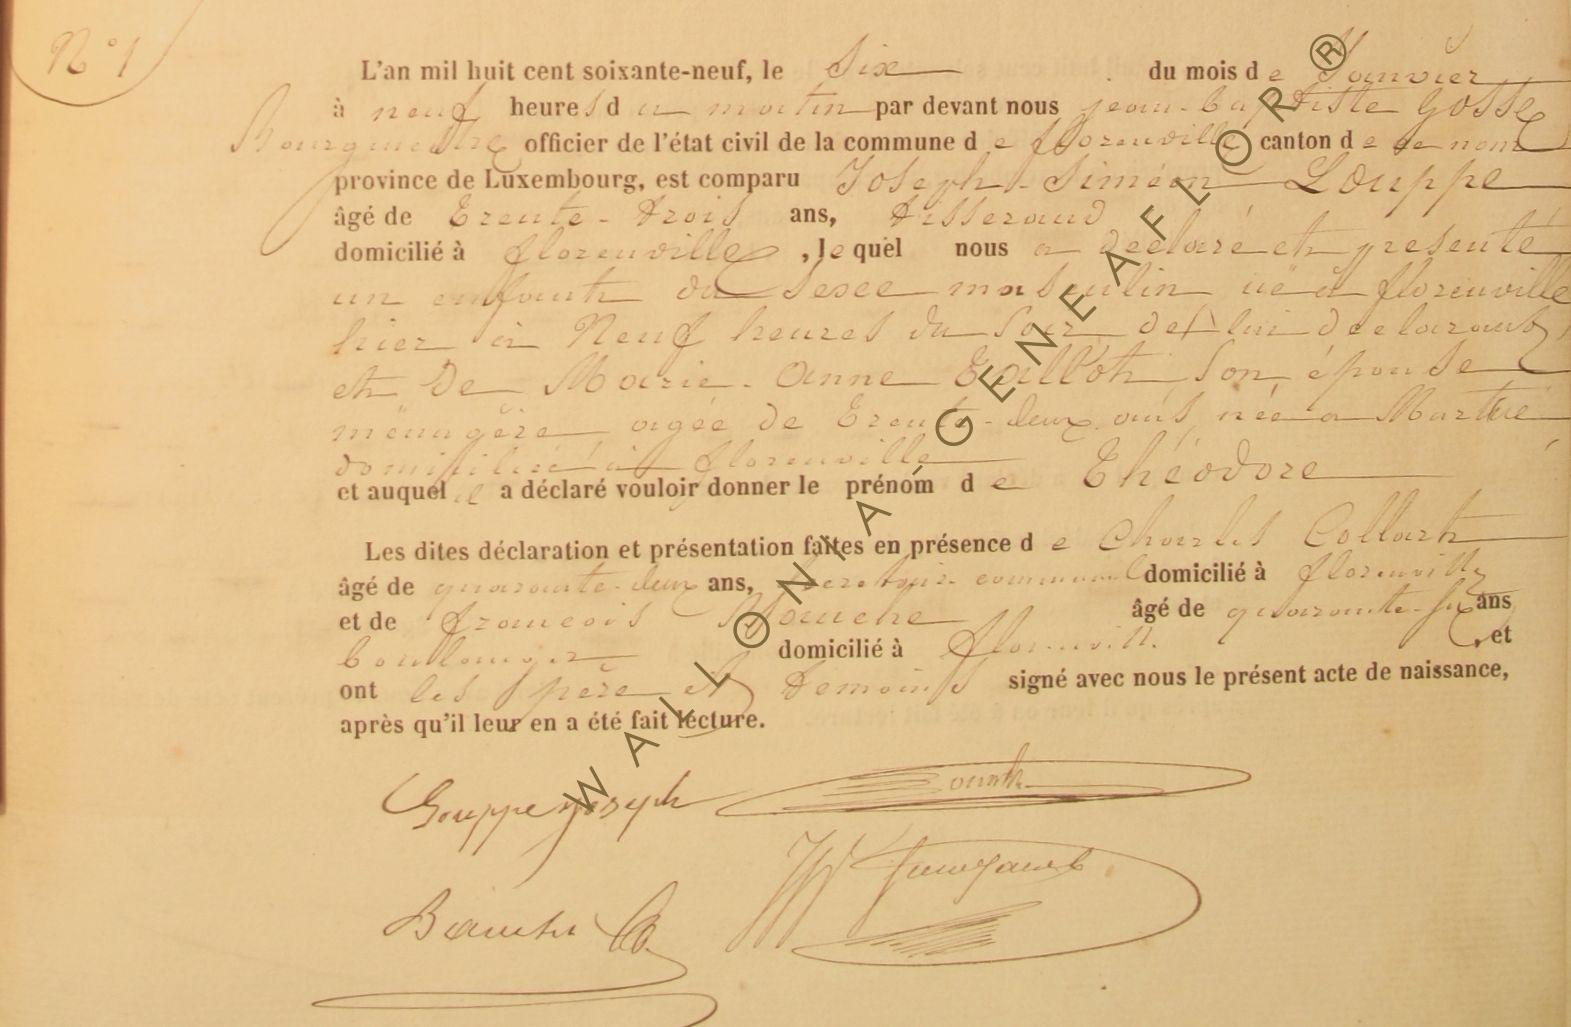 N° 1
L'an mil huit cent soixante-neuf, le Six du mois de Janvier
à neuf heures du matin par devant nous jean-baptiste Gosse
Bourgmestre officier de l'état civil de la commune de florenville canton de ce nom
province de Luxembourg, est comparu Joseph-Siméon Louppe
âgé de Trente-trois ans, tisserand
domicilié à florenville, Lequel nous a declaré et presenté
un enfant du Sexe masculin né à florenville
hier à Neuf heures du Soir de lui declarant
et De Marie-Anne Son épouse
ménagère agée de Trente-deux ans née a Martué
domicilié à florenville
et auquel il a déclaré vouloir donner le prénom de Théodore
Les dites déclaration et présentation faites en présence de Charles Collart
âgé de quarante-deux ans, Secretaire communal domicilié à florenville
et de françois âgé de quarante-six ans
boulanger domicilié à florenville, et
ont les père et temoins signé avec nous le présent acte de naissance,
après qu'il leur en a été fait lecture.
Louppe joseph
WALLONIA, GENEAFLOR®